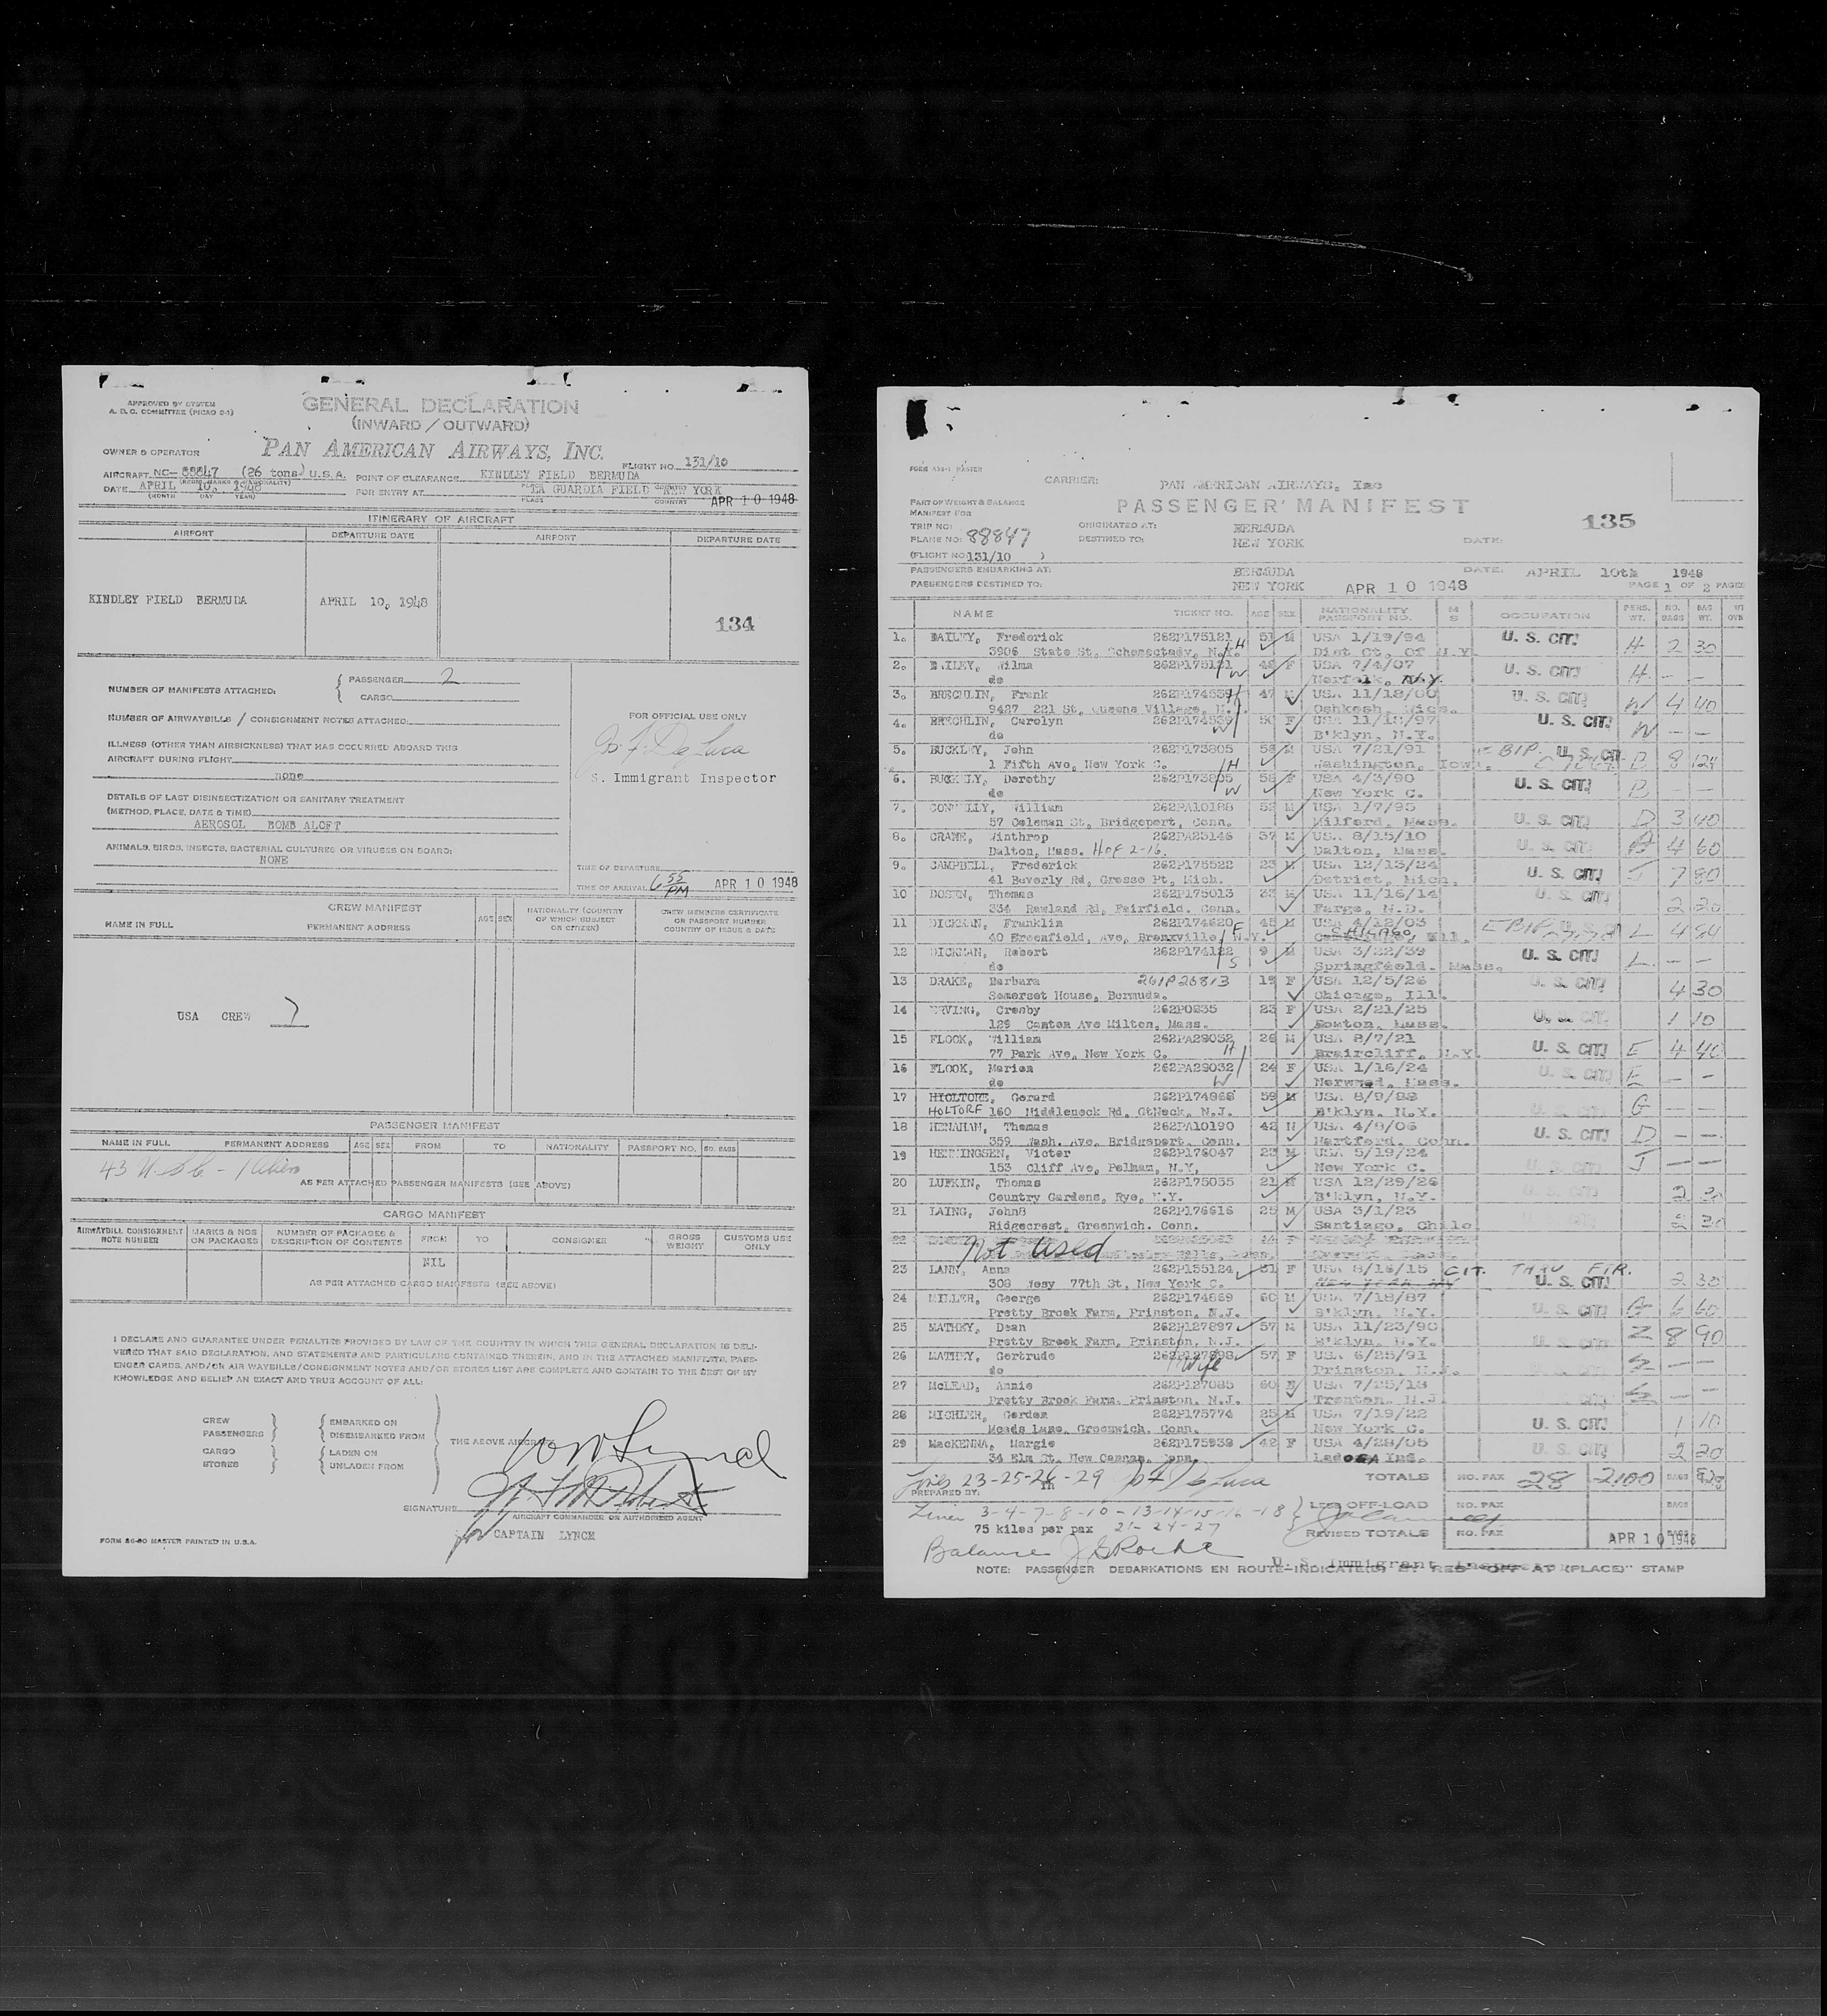 APPROVED BY SYSTEM
A. D. C. COMMITTEE (PICAO 2-1)
GENERAL DECLARATION
(INWARD / OUTWARD)
OWNER & OPERATOR PAN AMERICAN AIRWAYS, INC.
FLIGHT NO. 131/10
AIRCRAFT NC- 88847 (26 tons) U.S.A. POINT OF CLEARANCE KINDLEY FIELD BERMUDA
(REGIS. MARKS & NATIONALITY) PLACE COUNTRY
DATE APRIL 10, 1948 FOR ENTRY AT LA GUARDIA FIELD NEW YORK
(MONTH DAY YEAR) PLACE COUNTRY APR 10 1948
ITINERARY OF AIRCRAFT
AIRPORT DEPARTURE DATE AIRPORT DEPARTURE DATE
KINDLEY FIELD BERMUDA APRIL 10, 1948
134
NUMBER OF MANIFESTS ATTACHED: PASSENGER 2
CARGO
NUMBER OF AIRWAYBILLS / CONSIGNMENT NOTES ATTACHED:
FOR OFFICIAL USE ONLY
ILLNESS (OTHER THAN AIRSICKNESS) THAT HAS OCCURRED ABOARD THIS
AIRCRAFT DURING FLIGHT
none
S. Immigrant Inspector
DETAILS OF LAST DISINSECTIZATION OR SANITARY TREATMENT
(METHOD, PLACE, DATE & TIME)
AEROSOL BOMB ALOFT
ANIMALS, BIRDS, INSECTS, BACTERIAL CULTURES OR VIRUSES ON BOARD:
NONE
TIME OF DEPARTURE
TIME OF ARRIVAL 6 55 PM APR 10 1948
CREW MANIFEST
NAME IN FULL PERMANENT ADDRESS AGE SEX NATIONALITY (COUNTRY OF WHICH SUBJECT OR CITIZEN) CREW MEMBERS CERTIFICATE OR PASSPORT NUMBER COUNTRY OF ISSUE & DATE
USA CREW 7
PASSENGER MANIFEST
NAME IN FULL PERMANENT ADDRESS AGE SEX FROM TO NATIONALITY PASSPORT NO. NO. BAGS
43
AS PER ATTACHED PASSENGER MANIFESTS (SEE ABOVE)
CARGO MANIFEST
AIRWAYBILL CONSIGNMENT NOTE NUMBER MARKS & NOS ON PACKAGES NUMBER OF PACKAGES & DESCRIPTION OF CONTENTS FROM TO CONSIGNER GROSS WEIGHT CUSTOMS USE ONLY
NIL
AS PER ATTACHED CARGO MANIFESTS (SEE ABOVE)
I DECLARE AND GUARANTEE UNDER PENALTIES PROVIDED BY LAW OF THE COUNTRY IN WHICH THIS GENERAL DECLARATION IS DELI-
VERED THAT SAID DECLARATION, AND STATEMENTS AND PARTICULARS CONTAINED THEREIN, AND IN THE ATTACHED MANIFESTS, PASS-
ENGER CARDS, AND/OR AIR WAYBILLS/CONSIGNMENT NOTES AND/OR STORES LIST ARE COMPLETE AND CONTAIN TO THE BEST OF MY
KNOWLEDGE AND BELIEF AN EXACT AND TRUE ACCOUNT OF ALL:
CREW EMBARKED ON
PASSENGERS DISEMBARKED FROM
THE ABOVE AIRCRAFT
CARGO LADEN ON
STORES UNLADEN FROM
SIGNATURE
AIRCRAFT COMMANDER OR AUTHORIZED AGENT
for CAPTAIN LYNCH
FORM 86-80 MASTER PRINTED IN U.S.A.
CARRIER: PAN AMERICAN AIRWAYS, Inc
PART OF WEIGHT & BALANCE
MANIFEST FOR
PASSENGER MANIFEST
135
TRIP NO: ORIGINATED AT: BERMUDA
PLANE NO: 88847 DESTINED TO: NEW YORK DATE:
(FLIGHT NO 131/10 )
PASSENGERS EMBARKING AT: BERMUDA DATE: APRIL 10th 1948
PASSENGERS DESTINED TO: NEW YORK APR 10 1948 PAGE 1 OF 2 PAGES
NAME TICKET NO. AGE SEX NATIONALITY PASSPORT NO. M S OCCUPATION PERS. WT. NO. BAGS BAG WT.
1. BAILEY, Frederick 262P175121 H 51 M USA 1/19/94 U. S. CIT. H 2 30
3906 State St, Schenectady, N.Y. Dist Ct. Of N.Y.
2. BAILEY, Wilma 262P175121 W F USA 7/4/07 U. S. CIT. H - -
do Norfolk, N.Y.
3. BRECHLIN, Frank 262P174539 H 47 M USA 11/18/00 U. S. CIT. W 4 40
9427 221 St, Queens Village, N.Y. Oshkosh,
4. BRECHLIN, Carolyn 262P174539 W 50 F USA 11/18/97 U. S. CIT. W - -
do B'klyn, N.Y.
5. BUCKLEY, John 262P173805 H M USA 7/21/91 U. S. CIT. B 8 124
1 Fifth Ave, New York C. Washington, Iowa.
6. BUCKLEY, Dorothy 262P173805 W 58 F USA 4/3/90 U. S. CIT. B - -
do New York C.
7. CONNELLY, William 262PA10188 M USA 1/7/95 U. S. CIT. D 3 40
57 Coleman St, Bridgeport, Conn. Milford, Mass.
8. CRANE, Winthrop 262PA25146 37 M USA 8/15/10 U. S. CIT. 4 60
Dalton, Mass. Dalton, Mass.
9. CAMPBELL, Frederick 262P175522 23 M USA 12/13/24 U. S. CIT. J 7 80
41 Beverly Rd, Grosse Pt, Mich. Detroit, Mich.
10 DOSEN, Thomas 262P175013 M USA 11/16/14 U. S. CIT. 2 20
334 Rowland Rd, Fairfield. Conn. Fargo, N.D.
11 DICKMAN, Franklin 262P174620 F 45 M USA 4/12/03 L 4
40 Greenfield, Ave, Bronxville, N.Y. CHICAGO Ill.
12 DICKMAN, Robert 262P174122 S 9 M USA 3/22/39 U. S. CIT. L - -
do Springfield. Mass.
13 DRAKE, Barbara 261P26813 19 F USA 12/5/26 U. S. CIT. 4 30
Somerset House, Bermuda. Chicago, Ill.
14 ERVING, Crosby 23 F USA 2/21/25 U. S. CIT. 1 10
129 Canton Ave Milton, Mass. Boston, Mass.
15 FLOOK, William 262PA29032 H 26 M USA 8/7/21 U. S. CIT. E 4 40
77 Park Ave, New York C. Braircliff, N.Y.
16 FLOOK, Marion 262PA29032 W 24 F USA 1/16/24 U. S. CIT. E - -
do Norwood, Mass.
17 Gerard 59 M USA U. S. CIT. G - -
HOLTORF 160 Middleneck Rd, GtNeck, N.J. B'klyn, N.Y.
18 HENAHAN, Thomas 262PA10190 42 M USA 4/8/06 U. S. CIT. D - -
359 Wash. Ave, Bridgeport, Conn. Hartford. Conn.
19 HENNINGSEN, Victor 262P176047 23 M USA 5/19/24 U. S. CIT. J - -
153 Cliff Ave, Pelham, N.Y, New York C.
20 LUFKIN, Thomas 262P175035 21 M USA 12/29/26 U. S. CIT.
Country Gardens, Rye, N.Y. B'klyn, N.Y.
21 LAING, John8 262P176616 25 M USA 3/1/23
Ridgecrest, Greenwich. Conn. Santiago, Chile
22 Not Used
23 LANN, Anna 262P155124 31 F USA 8/16/15 CIT. THRU FTR.
308 Wesy 77th St, New York C. U. S. CIT. 2 30
24 MILLER, George 262P174869 60 M USA 7/18/87 U. S. CIT. G 6 60
Pretty Brook Farm, Prinston, N.J. B'klyn, N.Y.
25 MATHEY, Dean 262P127897 57 M USA 11/23/90 U. S. CIT. Z 8 90
Pretty Brook Farm, Prinston, N.J. B'klyn, N.Y.
26 MATHEY, Gertrude 262P127898 57 F USA 6/25/91 - -
do Wife Prinston, N.J.
27 McLEAD, Annie 262P127085 60 F USA - -
Pretty Brook Farm, Prinston, N.J. Trenton, N.J
28 MICHLER, Gordon 262P175774 25 M USA 7/19/22 U. S. CIT. 1 10
Meads Lane, Greenwich. Conn. New York C.
29 MacKENNA, Margie 262P175939 42 F USA 4/28/05 U. S. CIT. 2 20
34 Elm St, New Canaan, Conn. Ladoga Ind.
23-25-26-29 TOTALS NO. PAX 28 2100 BAGS
PREPARED BY:
3-4-7-8-10-13-14-15-16-18 LESS OFF-LOAD NO. PAX BAGS
75 kilos per pax 21-24-27 REVISED TOTALS NO. PAX APR 10 1948
Balance
U. S. Immigrant Inspector
NOTE: PASSENGER DEBARKATIONS EN ROUTE—INDICATE(D) BY RED "OFF AT (PLACE)" STAMP